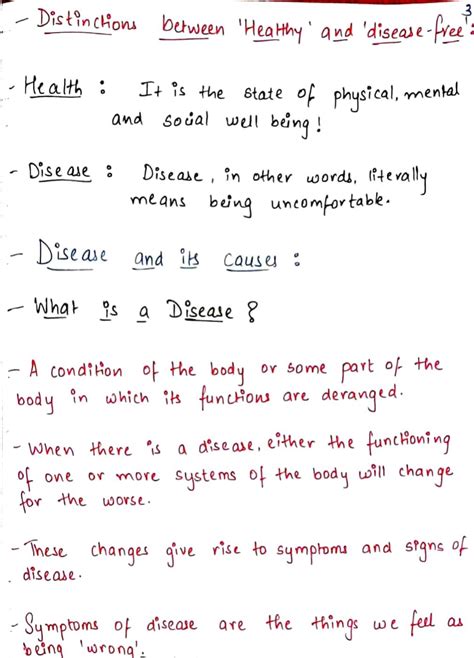 3
- Distinctions between 'Healthy' and 'disease-free':
- Health : It is the state of physical, mental
and social well being!
- Disease : Disease, in other words, literally
means being uncomfortable.
- Disease and its causes :
- What is a Disease ?
- A condition of the body or some part of the
body in which its functions are deranged.
- When there is a disease, either the functioning
of one or more systems of the body will change
for the worse.
- These changes give rise to symptoms and signs of
disease.
- Symptoms of disease are the things we feel as
being 'wrong'.